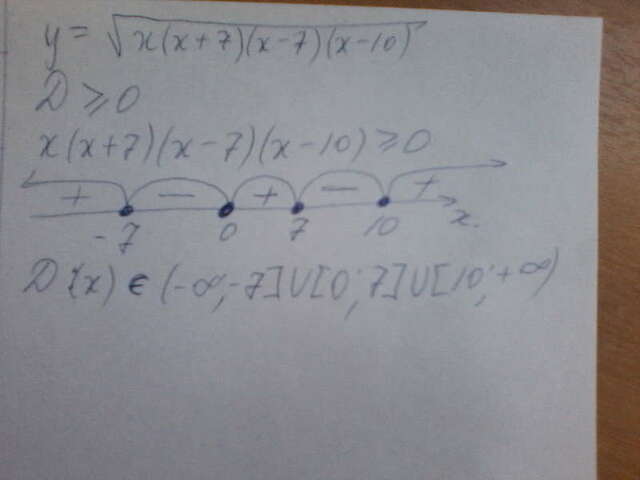 y = √x(x+7)(x-7)(x-10)
D ≥ 0
x(x+7)(x-7)(x-10) ≥ 0
+ − + − +
-7 0 7 10 x
D(x) ∈ (-∞;-7]U[0;7]U[10;+∞)